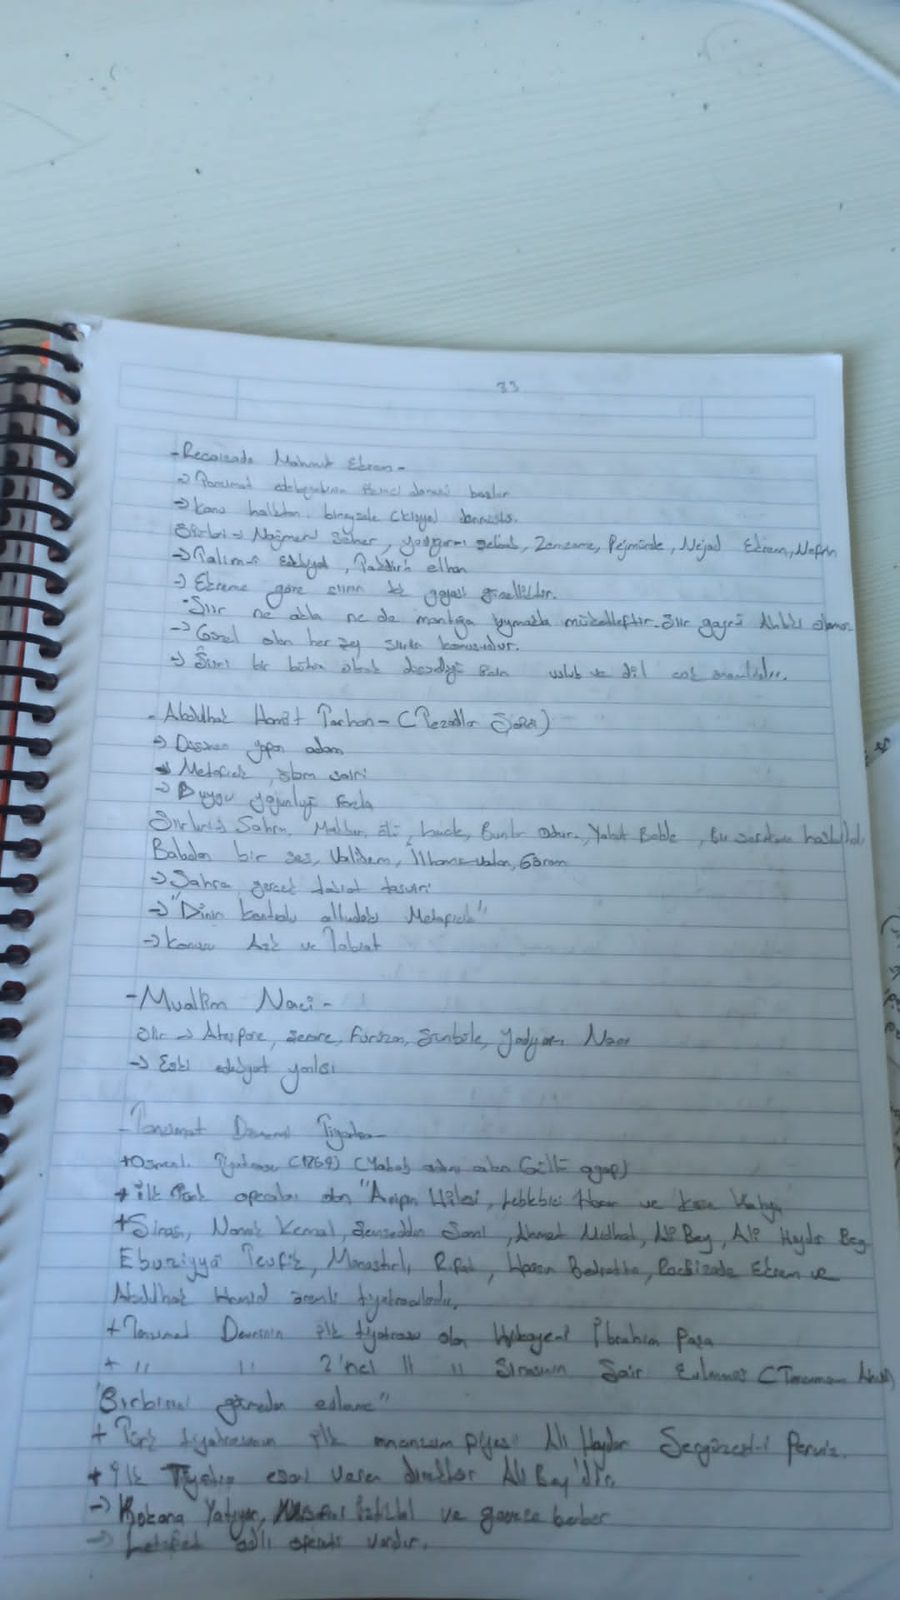 33
- Recaizade Mahmut Ekrem -
→ Tanzimat edebiyatının ikinci dönemi başlar
→ Konu halktan, bireysele (kişiye) dönmüştür.
Şiirleri → Nağmeni Seher, yadigarı şebab, Zemzeme, Pejmürde, Nejad Ekrem, Nefrin
→ Talim-i Edebiyat, Takdir'i elhan
→ Ekreme göre şiirin tek gayesi güzelliktir.
Şiir ne akla ne de mantığa uymakla mükelleftir. Şiir gayrı Ahlaki olamaz
→ Güzel olan her şey şiirin konusudur.
→ Şiiri bir bütün olarak için üslub ve dil çok önemlidir.
- Abdülhak Hamit Tarhan - (Tezatlar Şairi)
→ yapan adam
→ Metafizik, ölüm şairi
→ Duygu yoğunluğu fazla
Şiirleri → Sahra, Makber, Ölü, Hacle, Bunlar Odur, Bir
Baladan bir ses, Validem, İlham-ı Vatan, Garam
→ Sahra gerçek tabiat tasviri
→ "Dinin kontrolü altındaki Metafizik"
→ Konusu Aşk ve Tabiat
- Muallim Naci -
Şiir → Ateşpare, Şerare, Füruzan, Sünbüle, Yadigar-ı Naci
→ Eski edebiyat yanlısı
- Tanzimat Dönemi Tiyatro -
+ Osmanlı Tiyatrosu ( ) ( adını alan Güllü agop)
+ İlk Türk operaları olan "Arifin Hilesi, Leblebici Horhor ve Köse Kahya
+ Şinasi, Namık Kemal, Şemseddin Sami, Ahmet Midhat, Ali Bey, Ali Haydar Bey
Ebuzziya Tevfik, Manastırlı Rıfat, Hasan Bedrettin, Recaizade Ekrem ve
Abdülhak Hamid önemli tiyatrocularıdır.
+ Tanzimat Devrinin ilk tiyatrosu olan İbrahim Paşa
+ " " 2'nci " " Şinasinin Şair Evlenmesi
görmeden evlenme"
+ Türk tiyatrosunun ilk manzum piyesi Ali Haydar Sergüzeşt-i Perviz.
+ İlk Tiyatro eseri veren Ali Bey'dir.
→ Kokona Yatıyor, Misafiri İstiskal ve geveze berber
→ Letafet adlı opereti vardır.